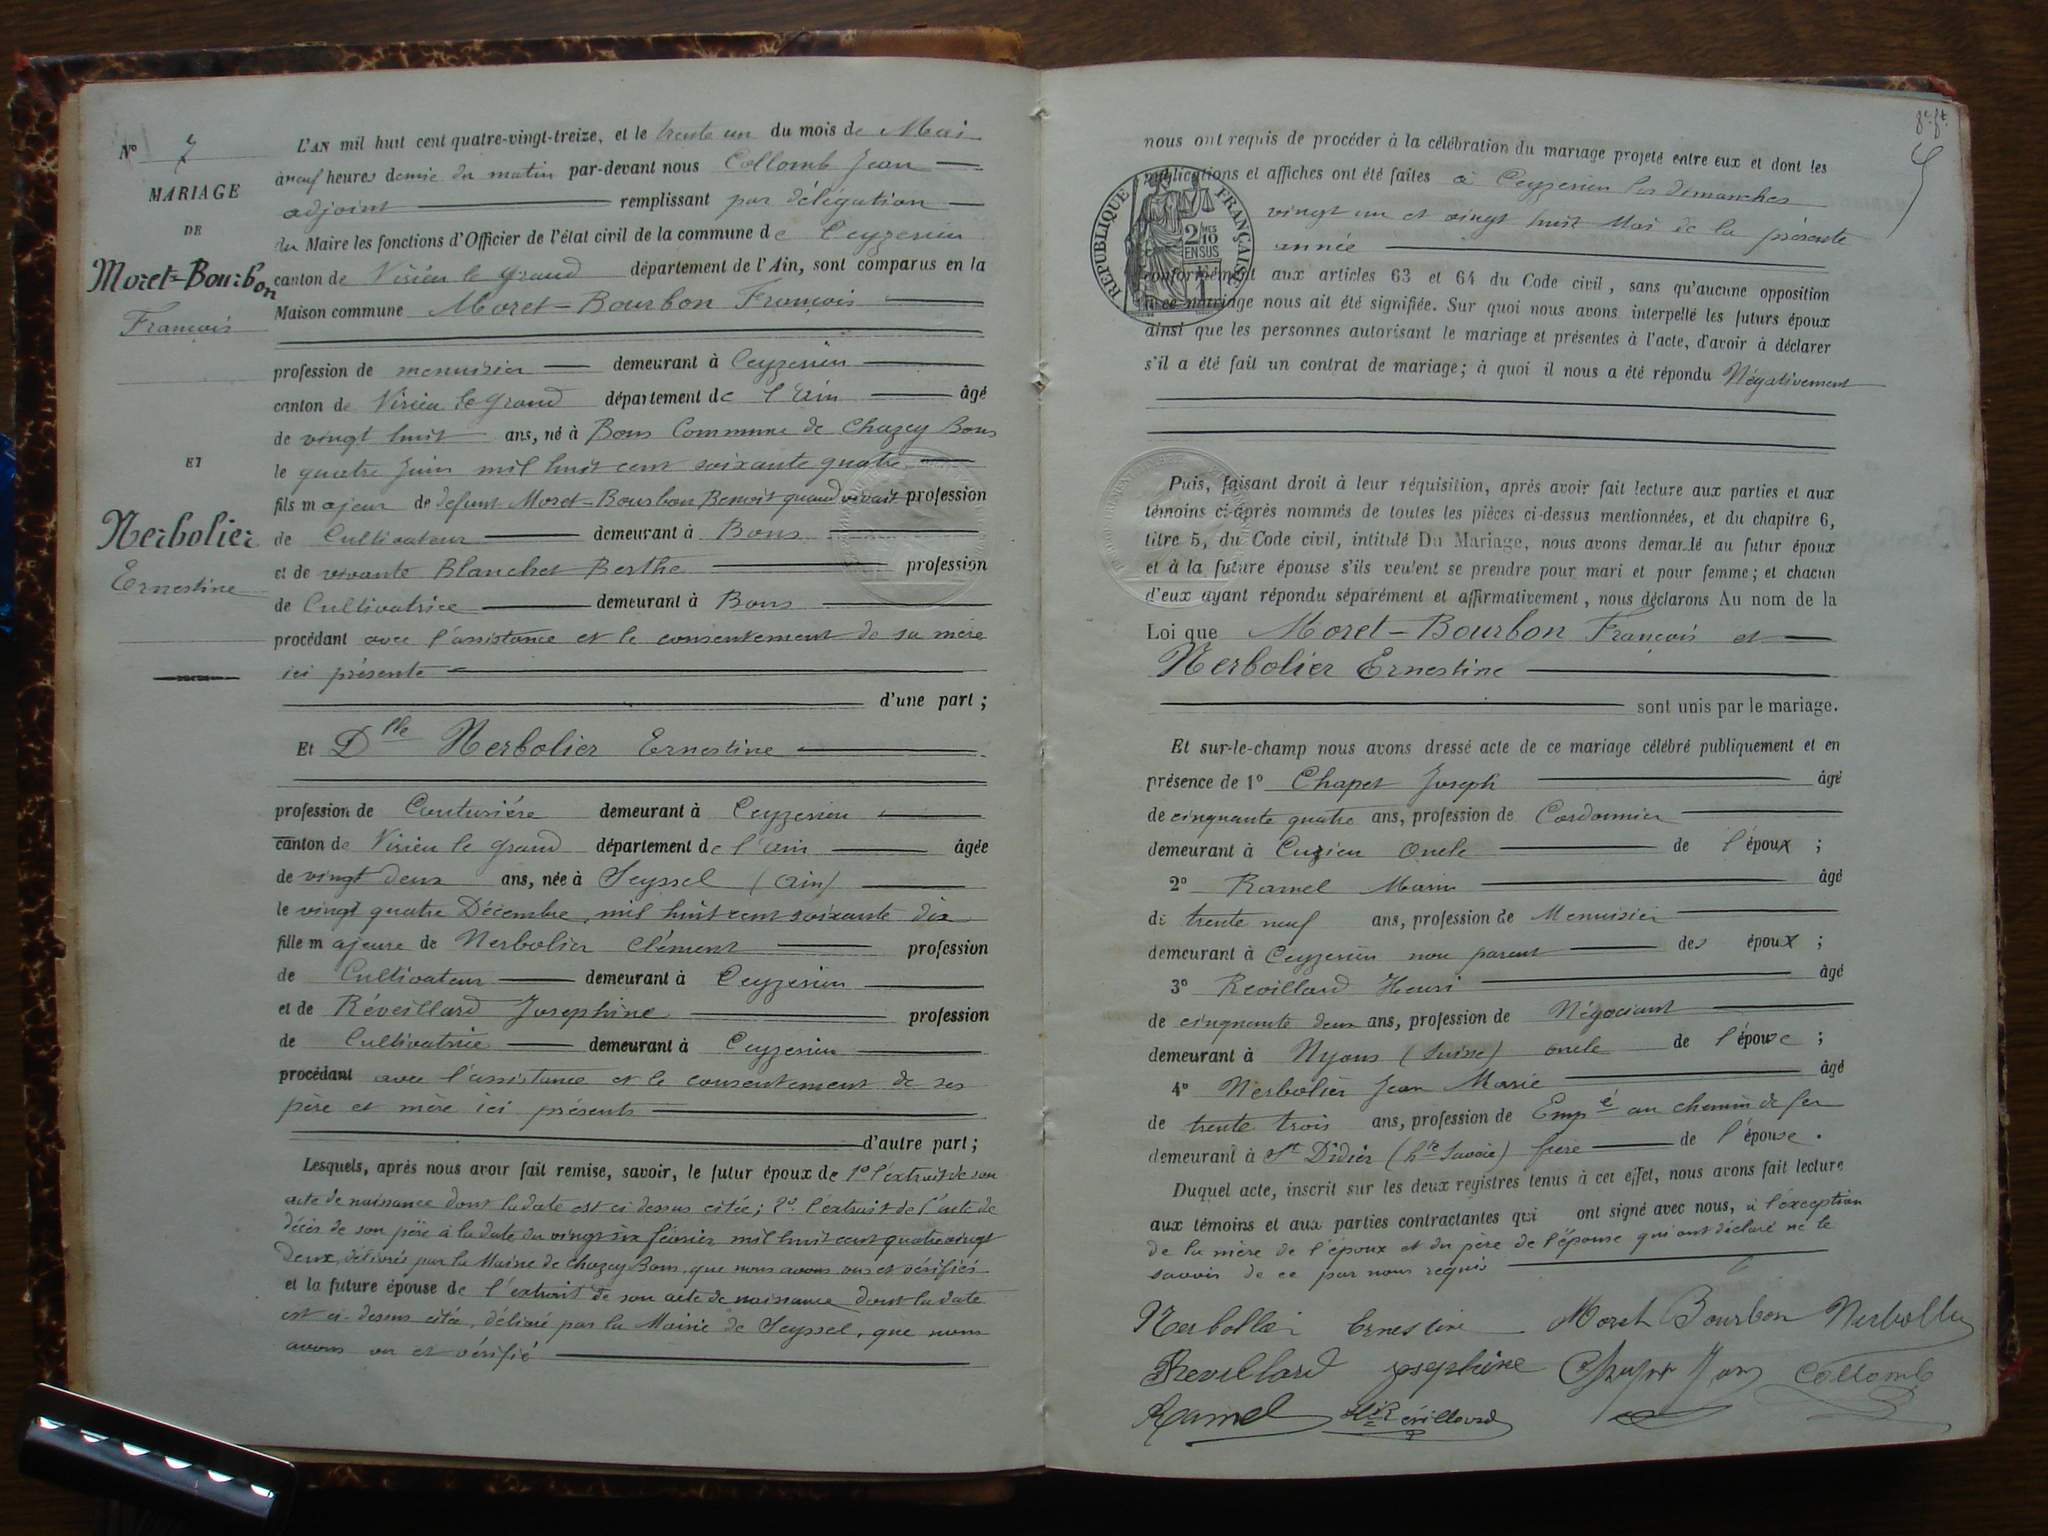 N° 7
MARIAGE
DE
Moret=Bourbon
François
ET
Nerbolier
Ernestine
L'AN mil huit cent quatre-vingt-treize, et le trente un du mois de Mai
à neuf heures demie du matin par-devant nous Collomb Jean
adjoint remplissant par délégation
du Maire les fonctions d'Officier de l'état civil de la commune de Ceyzerieu
canton de Virieu le grand département de l'Ain, sont comparus en la
Maison commune Moret=Bourbon François
profession de menuisier demeurant à Ceyzerieu
canton de Virieu le grand département de l'Ain âgé
de vingt huit ans, né à Bons Commune de Chazey Bons
le quatre Juin mil huit cent soixante quatre
fils majeur de defunt Moret=Bourbon Benoit quand vivait profession
de Cultivateur demeurant à Bons
et de vivante Blanchet Berthe profession
de Cultivatrice demeurant à Bons
procédant avec l'assistance et le consentement de sa mère
ici présente
d'une part ;
Et Dlle Nerbolier Ernestine
profession de Couturière demeurant à Ceyzerieu
canton de Virieu le grand département de l'ain âgée
de vingt deux ans, née à Seyssel (Ain)
le vingt quatre Décembre mil huit cent soixante dix
fille majeure de Nerbolier Clément profession
de Cultivateur demeurant à Ceyzerieu
et de Réveillard Josephine profession
de Cultivatrice demeurant à Ceyzerieu
procédant avec l'assistance et le consentement de ses
père et mère ici présents
d'autre part ;
Lesquels, après nous avoir fait remise, savoir, le futur époux de 1° l'extrait de son
acte de naissance dont la date est ci dessus citée ; 2° l'extrait de l'acte de
décès de son père à la date du vingt six février mil huit cent quatre vingt
deux, délivrés par la Mairie de Chazey Bons, que nous avons vus et vérifiés
et la future épouse de l'extrait de son acte de naissance dont la date
est ci-dessus citée, délivré par la Mairie de Seyssel, que nous
avons vu et vérifié
nous ont requis de procéder à la célébration du mariage projeté entre eux et dont les
publications et affiches ont été faites à Ceyzerieu les dimanches
vingt un et vingt huit Mai de la présente
année
conformément aux articles 63 et 64 du Code civil, sans qu'aucune opposition
à ce mariage nous ait été signifiée. Sur quoi nous avons interpellé les futurs époux
ainsi que les personnes autorisant le mariage et présentes à l'acte, d'avoir à déclarer
s'il a été fait un contrat de mariage ; à quoi il nous a été répondu Négativement
RÉPUBLIQUE FRANÇAISE
2/10
EN SUS
Puis, faisant droit à leur réquisition, après avoir fait lecture aux parties et aux
témoins ci-après nommés de toutes les pièces ci-dessus mentionnées, et du chapitre 6,
titre 5, du Code civil, intitulé Du Mariage, nous avons demandé au futur époux
et à la future épouse s'ils veulent se prendre pour mari et pour femme ; et chacun
d'eux ayant répondu séparément et affirmativement, nous déclarons Au nom de la
Loi que Moret=Bourbon François et
Nerbolier Ernestine
sont unis par le mariage.
Et sur-le-champ nous avons dressé acte de ce mariage célébré publiquement et en
présence de 1° Chapet Joseph âgé
de cinquante quatre ans, profession de Cordonnier
demeurant à Cuzieu oncle de l'époux ;
2° Ramel Marin âgé
de trente neuf ans, profession de Menuisier
demeurant à Ceyzerieu non parent des époux ;
3° Revillard Henri âgé
de cinquante deux ans, profession de Négociant
demeurant à Nyons (Suisse) oncle de l'épouse ;
4° Nerbolier Jean Marie âgé
de trente trois ans, profession de Empé au chemin de fer
demeurant à St Didier (hte Savoie) frère de l'épouse.
Duquel acte, inscrit sur les deux registres tenus à cet effet, nous avons fait lecture
aux témoins et aux parties contractantes qui ont signé avec nous, à l'exception
de la mère de l'époux et du père de l'épouse qui ont déclaré ne le
savoir de ce par nous requis
Nerbollier Ernestine Moret Bourbon Nerbollier
Revillard josephine Collomb
Ramel Hri Révillard